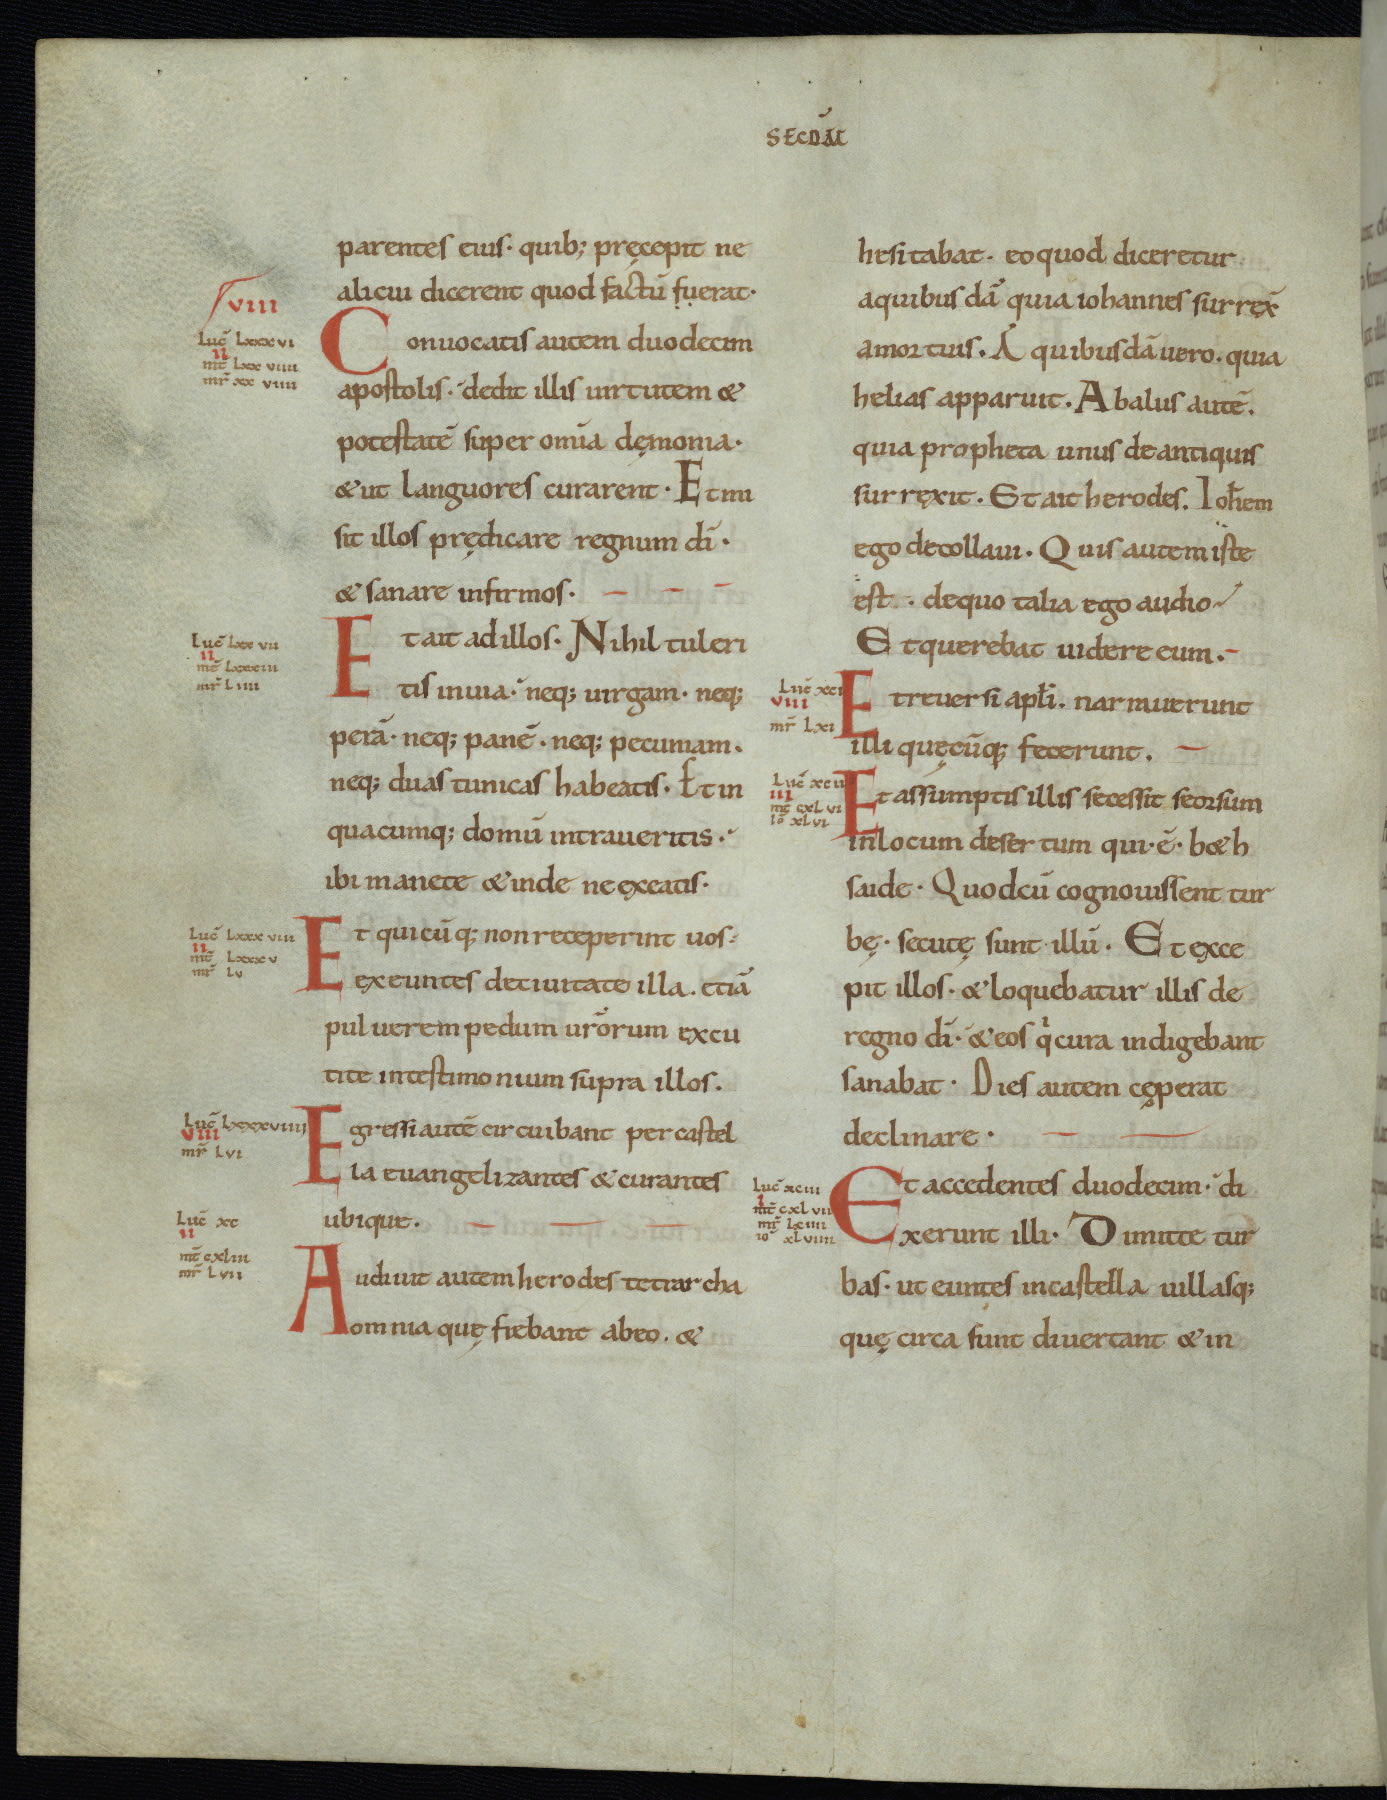 SECDÃT
parentes eius· quib; pręcepit ne
alicui dicerent quod factū fuerat·
VIII
Luc̄ Lxxxvi
II
mt̄ Lxxviiii
mr̄ xxviiii
Conuocatis autem duodecim
apostolis· dedit illis uirtutem &
potestatē super om̄ia dęmonia·
& ut languores curarent· Et mi
sit illos prędicare regnum dī·
& sanare infirmos·
Luc̄ Lxxvii
II
mt̄ Lxxxiii
mr̄ Liiii
Et ait ad illos· Nihil tuleri
tis in uia· neq; uirgam· neq;
perā· neq; panē· neq; pecuniam·
neq; duas tunicas habeatis· Et in
quacumq; domū intraueritis·
ibi manete & inde ne exeatis·
Luc̄ Lxxxviii
II
mt̄ Lxxxv
mr̄ Lv
Et quicūq; non receperint uos·
exeuntes de ciuitate illa· etiā
puluerem pedum ur̄orum excu
tite in testimonium supra illos·
Luc̄ Lxxxviiii
VIII
mr̄ Lvi
Egressi autē circuibant per castel
la euangelizantes & curantes
ubique·
Luc̄ xc
II
mt̄ cxliii
mr̄ Lvii
Audiuit autem herodes tetrarcha
omnia quę fiebant ab eo· &
hesitabat· eo quod diceretur
a quibusdā quia iohannes surrex̄
a mortuis· A quibusdā uero· quia
helias apparuit· Ab alus autē·
quia propheta unus de antiquis
surrexit· Et ait herodes· Ioħem
ego decollaui· Quis autem iste
est· de quo talia ego audio
Et querebat uidere eum·
Luc̄ xci
VIII
mr̄ Lxi
Et reuersi apłi· narrauerunt
illi quęcūq; fecerunt·
Luc̄ xcii
III
mt̄ cxlvi
Io̅ xlvi
Et assumptis illis secessit seorsum
in locum desertum qui·ē· b&h
saide· Quod cū cognouissent tur
bę· secutę sunt illū· Et exce
pit illos· & loquebatur illis de
regno dī· & eos q̇ cura indigebant
sanabat· Dies autem cęperat
declinare·
Luc̄ xciii
I
mt̄ cxlvii
mr̄ Lxiiii
io̅ xlviiii
Et accedentes duodecim· di
xerunt illi· Dimitte tur
bas· ut euntes in castella uillasq;
quę circa sunt diuertant & in